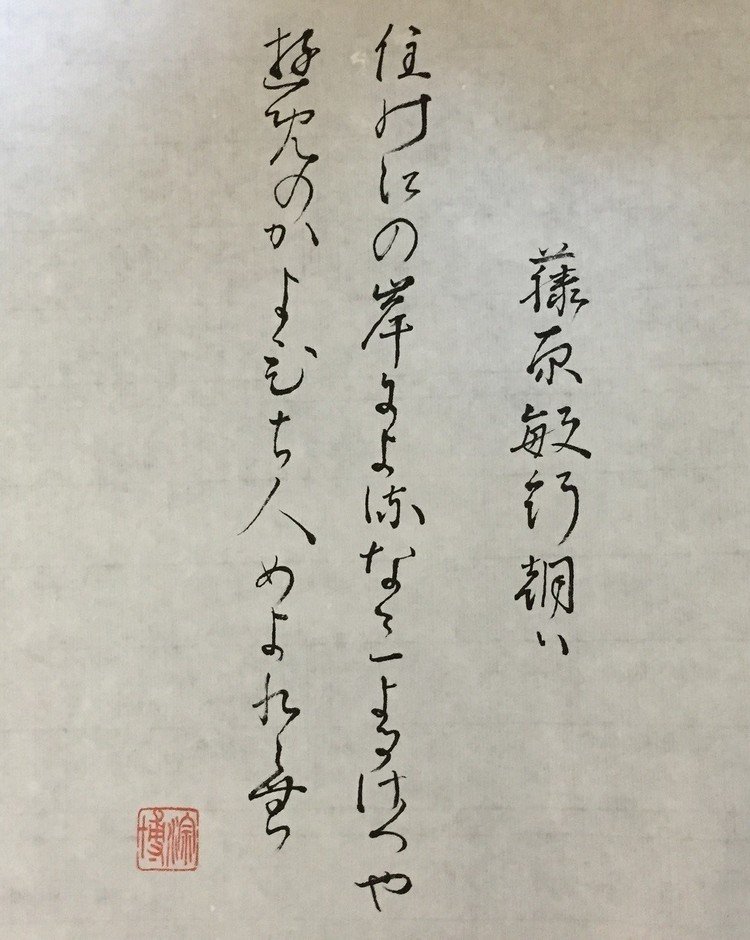 藤原敏行朝臣
住の江の岸によるなみよるさへや
遊免のかよひち人めよくらむ